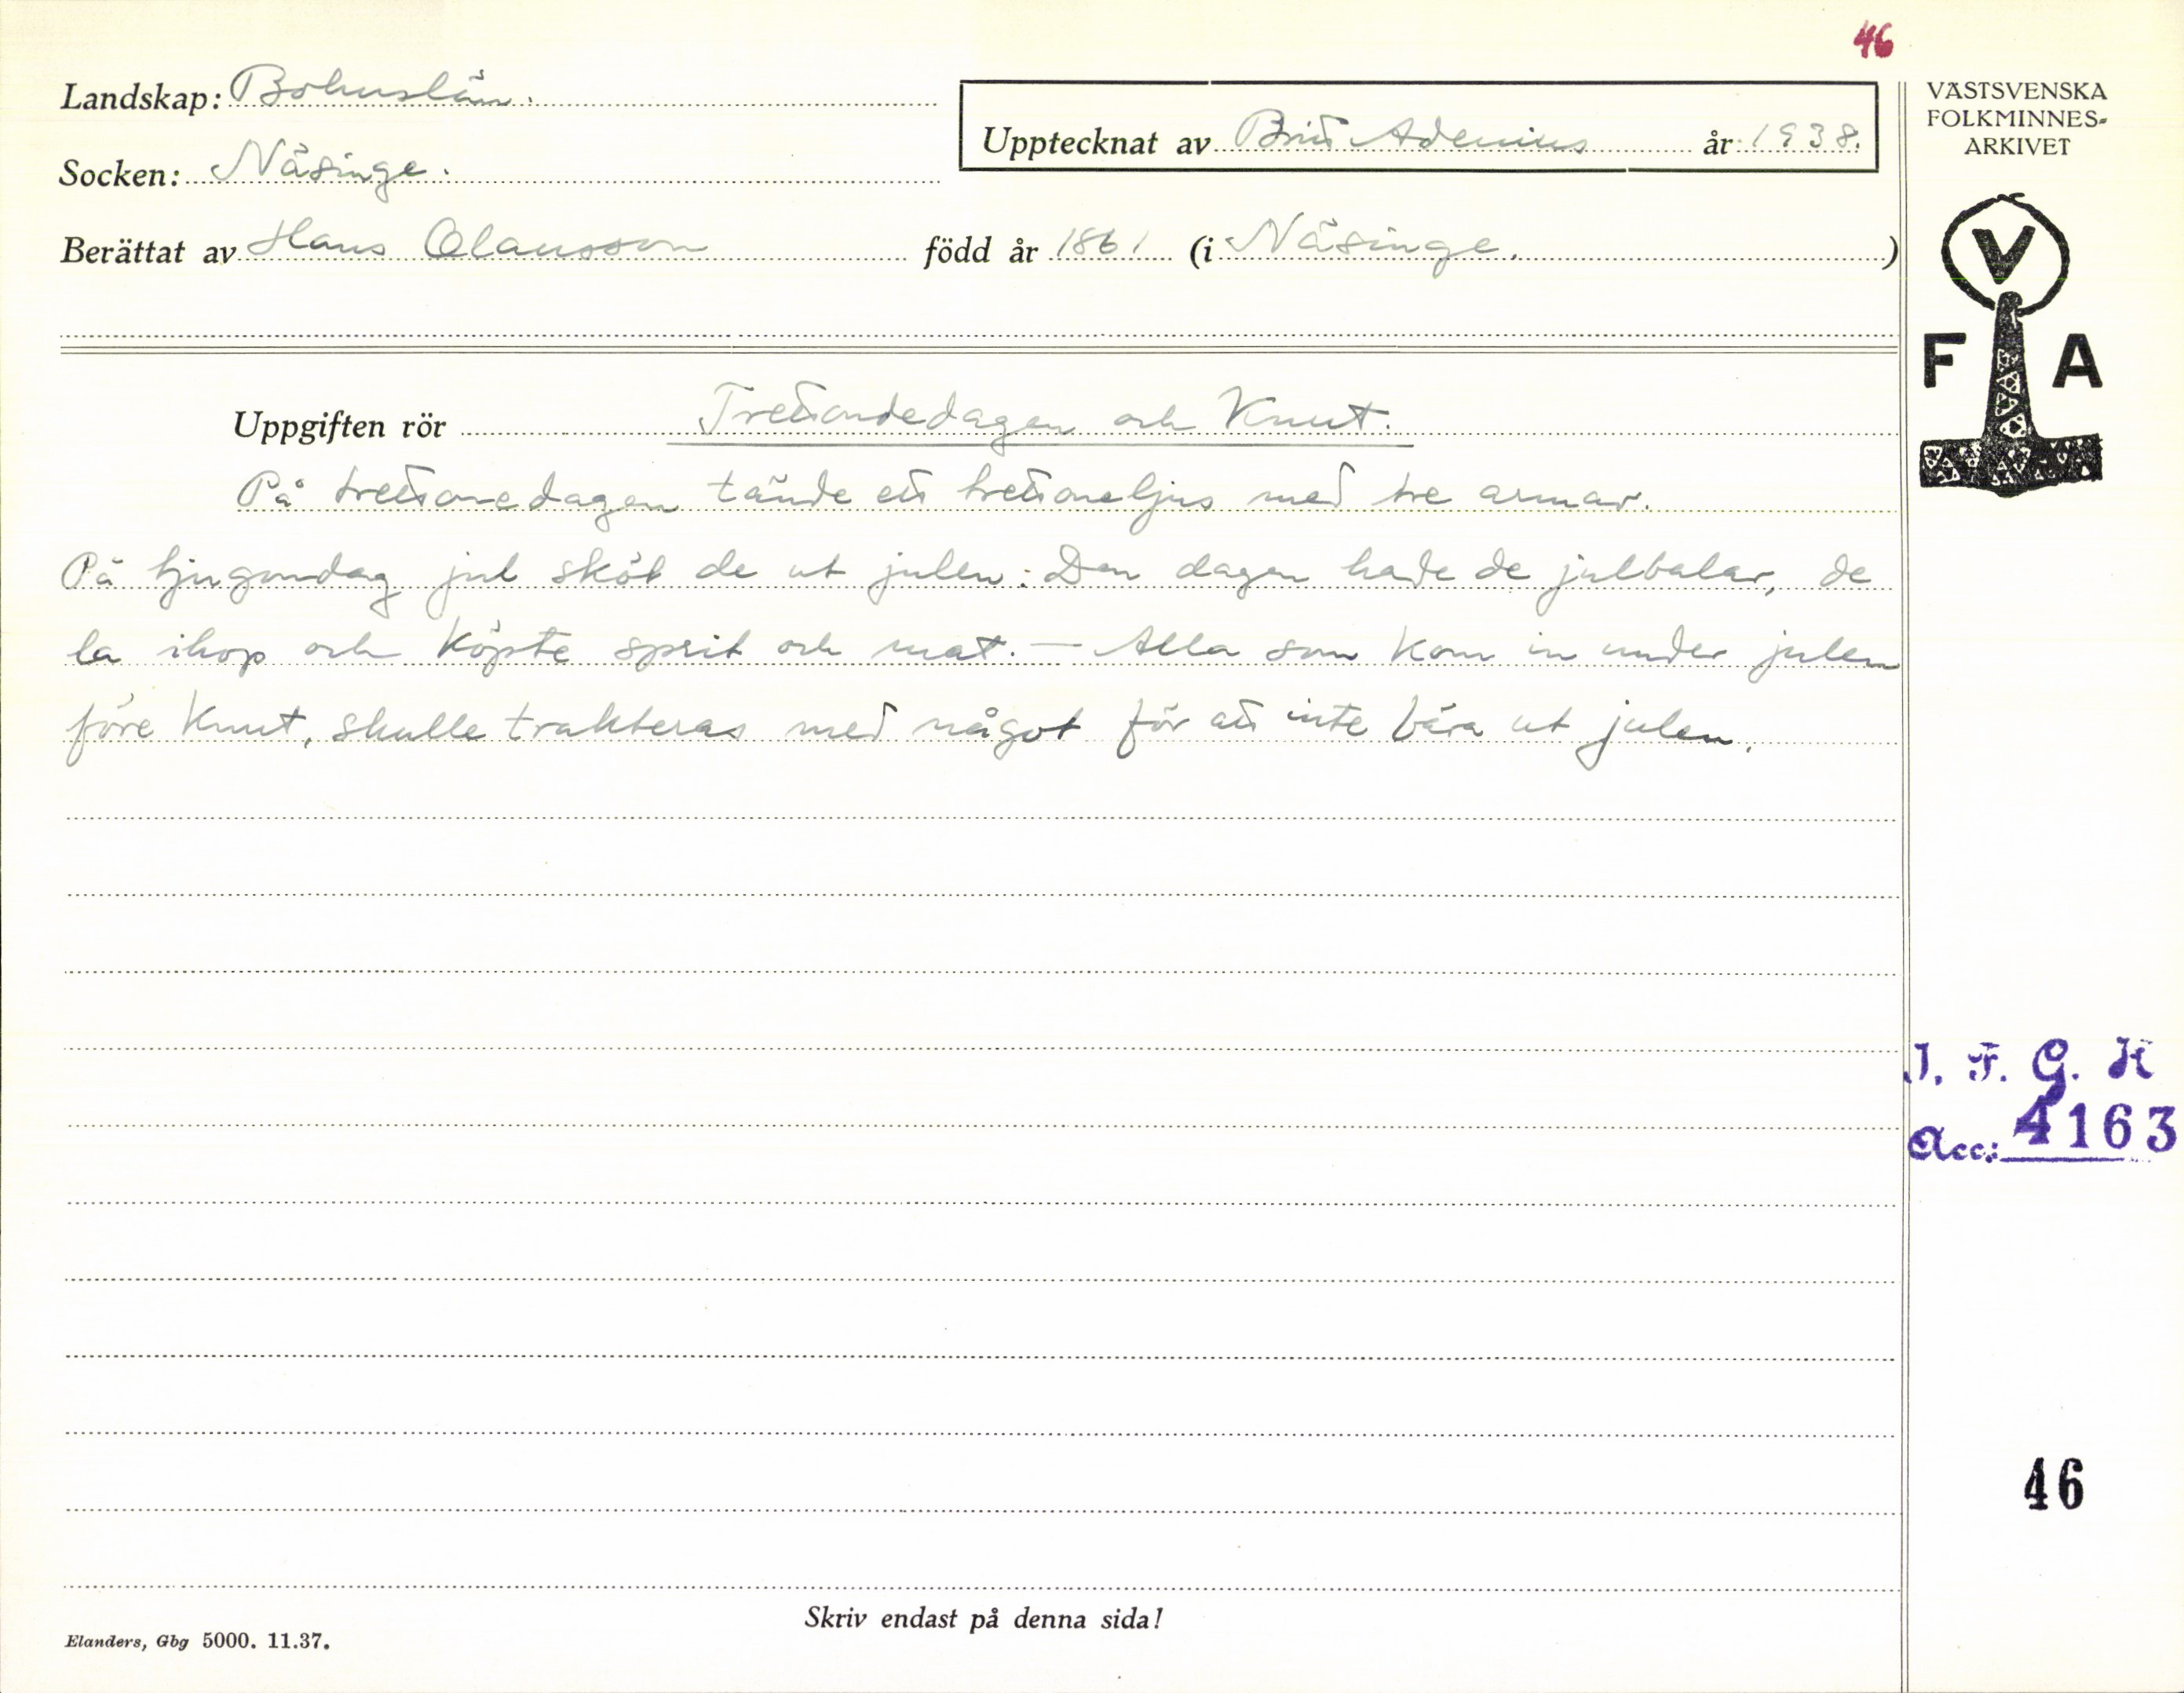 46
Landskap: Bohuslän.
Upptecknat av Britt Adenius år 1938.
Socken: Näsinge.
Berättat av Hans Olausson född år 1861 (i Näsinge.)
VÄSTSVENSKA
FOLKMINNES-
ARKIVET
V
F A
Uppgiften rör Trettondedagen och Knut.
På trettonedagen tände ett trettoneljus med tre armar.
På tjugondag jul sköt de ut julen: Den dagen hade de julbalar, de
la ihop och köpte sprit och mat. — Alla som kom in under julen
före Knut, skulle trakteras med något för att inte bära ut julen.
I. F. G. H
Acc: 4163
46
Skriv endast på denna sida!
Elanders, Gbg 5000. 11.37.